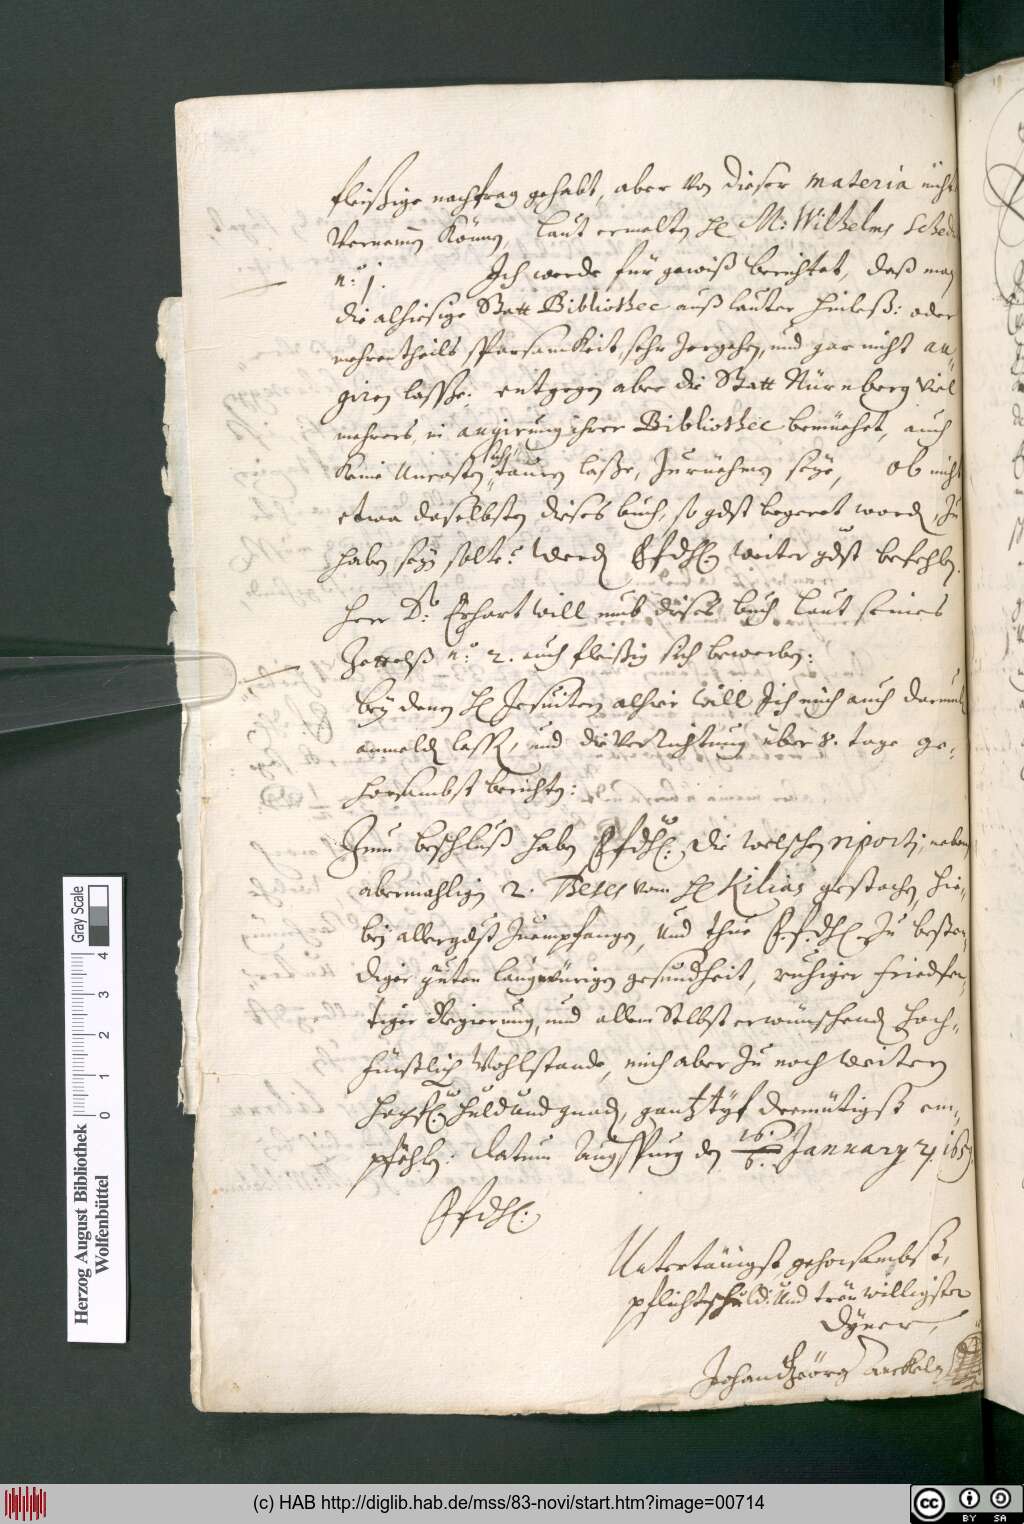 fleißige nachfrag gehabt, aber von dieser materia nicht
vernemen können, laut ermelten H. M: Wilhelms Sched
n.° 1. Ich werde für gewiß berichtet, daß man
die alhiesige Statt Bibliothec auß lauter hinleß: oder
mehrentheils sparsamkeit, sehr zergehen, und gar nicht au-
giren lasse: entgegen aber die Statt Nürnberg viel
mehrers, in augirung ihrer Bibliothec bemüehet, auch
keine Uncosten sich tauren laße, zurüehmen seye, ob nicht
etwa daselbsten dieses buch, so gdst begeret word, zu
haben sein solte? werd EfdH. weiter gdst befehlen.
Herr D: Erhart will umb dises buch laut seines
Zettelß n.° 2. auch fleißig sich bewerben:
bey denen H Jesuitern alhie will Ich mich auch darumb
anmelden lassen, und die verrichtung über 8. tage ge-
horsambst berichten:
Zum beschluß haben EfdH: die welschen riporti, neben
abermahligen 2. Beses vom H Kilian gestochen, hie-
bei allergdst zuempfangen, und thue E.f.dH. zu bestän-
diger guten langwürigen gesundheit, ruhiger friedfer-
tiger Regierung, und allem Selbst erwünschend hoch-
fürstlich Wohlstande, mich aber zu noch weitern
hochf. huld und gnad, gantz tyf demütigst em-
pfehlen: Datum Augspurg den 16./6. January A. 165
EfdH:
Untertänigst, gehorsambst,
pflichtschuld: und treu willigster
Dyner,
Johan Geörg Anckel
Herzog August Bibliothek
Wolfenbüttel
0 1 2 3 4
Gray Scale
(c) HAB http://diglib.hab.de/mss/83-novi/start.htm?image=00714
cc BY SA